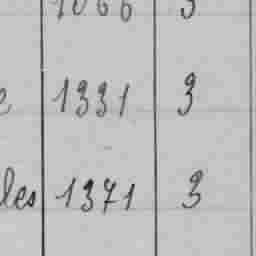 1066 3
1331 3
les 1371 3